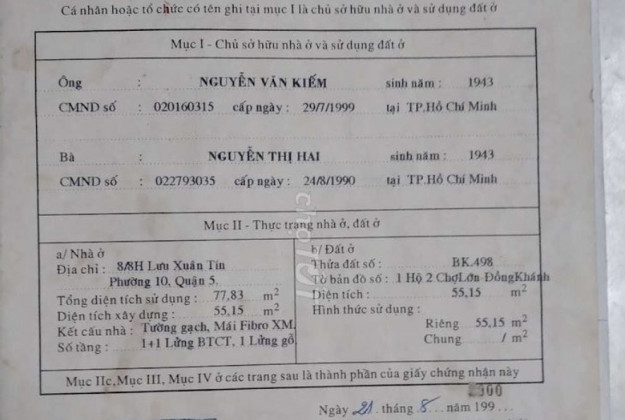 Cá nhân hoặc tổ chức có tên ghi tại mục I là chủ sở hữu nhà ở và sử dụng đất ở
Mục I - Chủ sở hữu nhà ở và sử dụng đất ở
Ông : NGUYỄN VĂN KIẾM sinh năm : 1943
CMND số : 020160315 cấp ngày : 29/7/1999 tại TP.Hồ Chí Minh
Bà : NGUYỄN THỊ HAI sinh năm : 1943
CMND số : 022793035 cấp ngày : 24/8/1990 tại TP.Hồ Chí Minh
Mục II - Thực trạng nhà ở, đất ở
a/ Nhà ở
Địa chỉ : 8/8H Lưu Xuân Tín
Phường 10, Quận 5.
Tổng diện tích sử dụng : 77,83 m²
Diện tích xây dựng : 55,15 m²
Kết cấu nhà : Tường gạch, Mái Fibro XM.
Số tầng : 1+1 Lửng BTCT, 1 Lửng gỗ.
b/ Đất ở
Thửa đất số : BK.498
Tờ bản đồ số : 1 Hộ 2 ChợLớn-ĐồngKhánh
Diện tích : 55,15 m²
Hình thức sử dụng :
Riêng : 55,15 m²
Chung / m²
chợTỐT
Mục IIc,Mục III, Mục IV ở các trang sau là thành phần của giấy chứng nhận này
Ngày 21 tháng 8 năm 199...